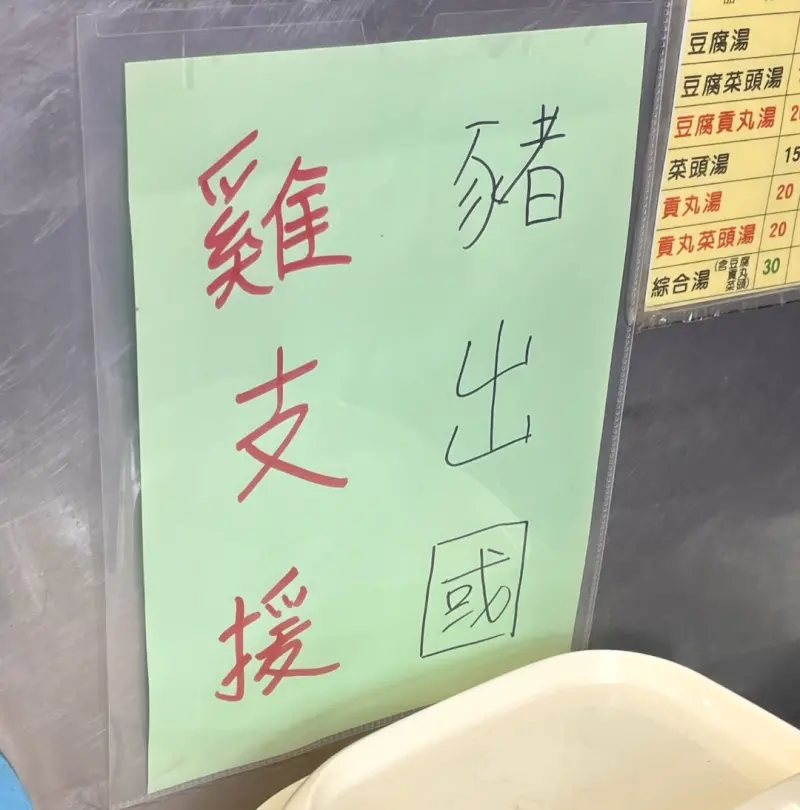 豬出國
雞支援
豆腐湯
豆腐菜頭湯
豆腐貢丸湯 2
菜頭湯 15
貢丸湯 20
貢丸菜頭湯 20
綜合湯(含豆腐貢丸菜頭) 30